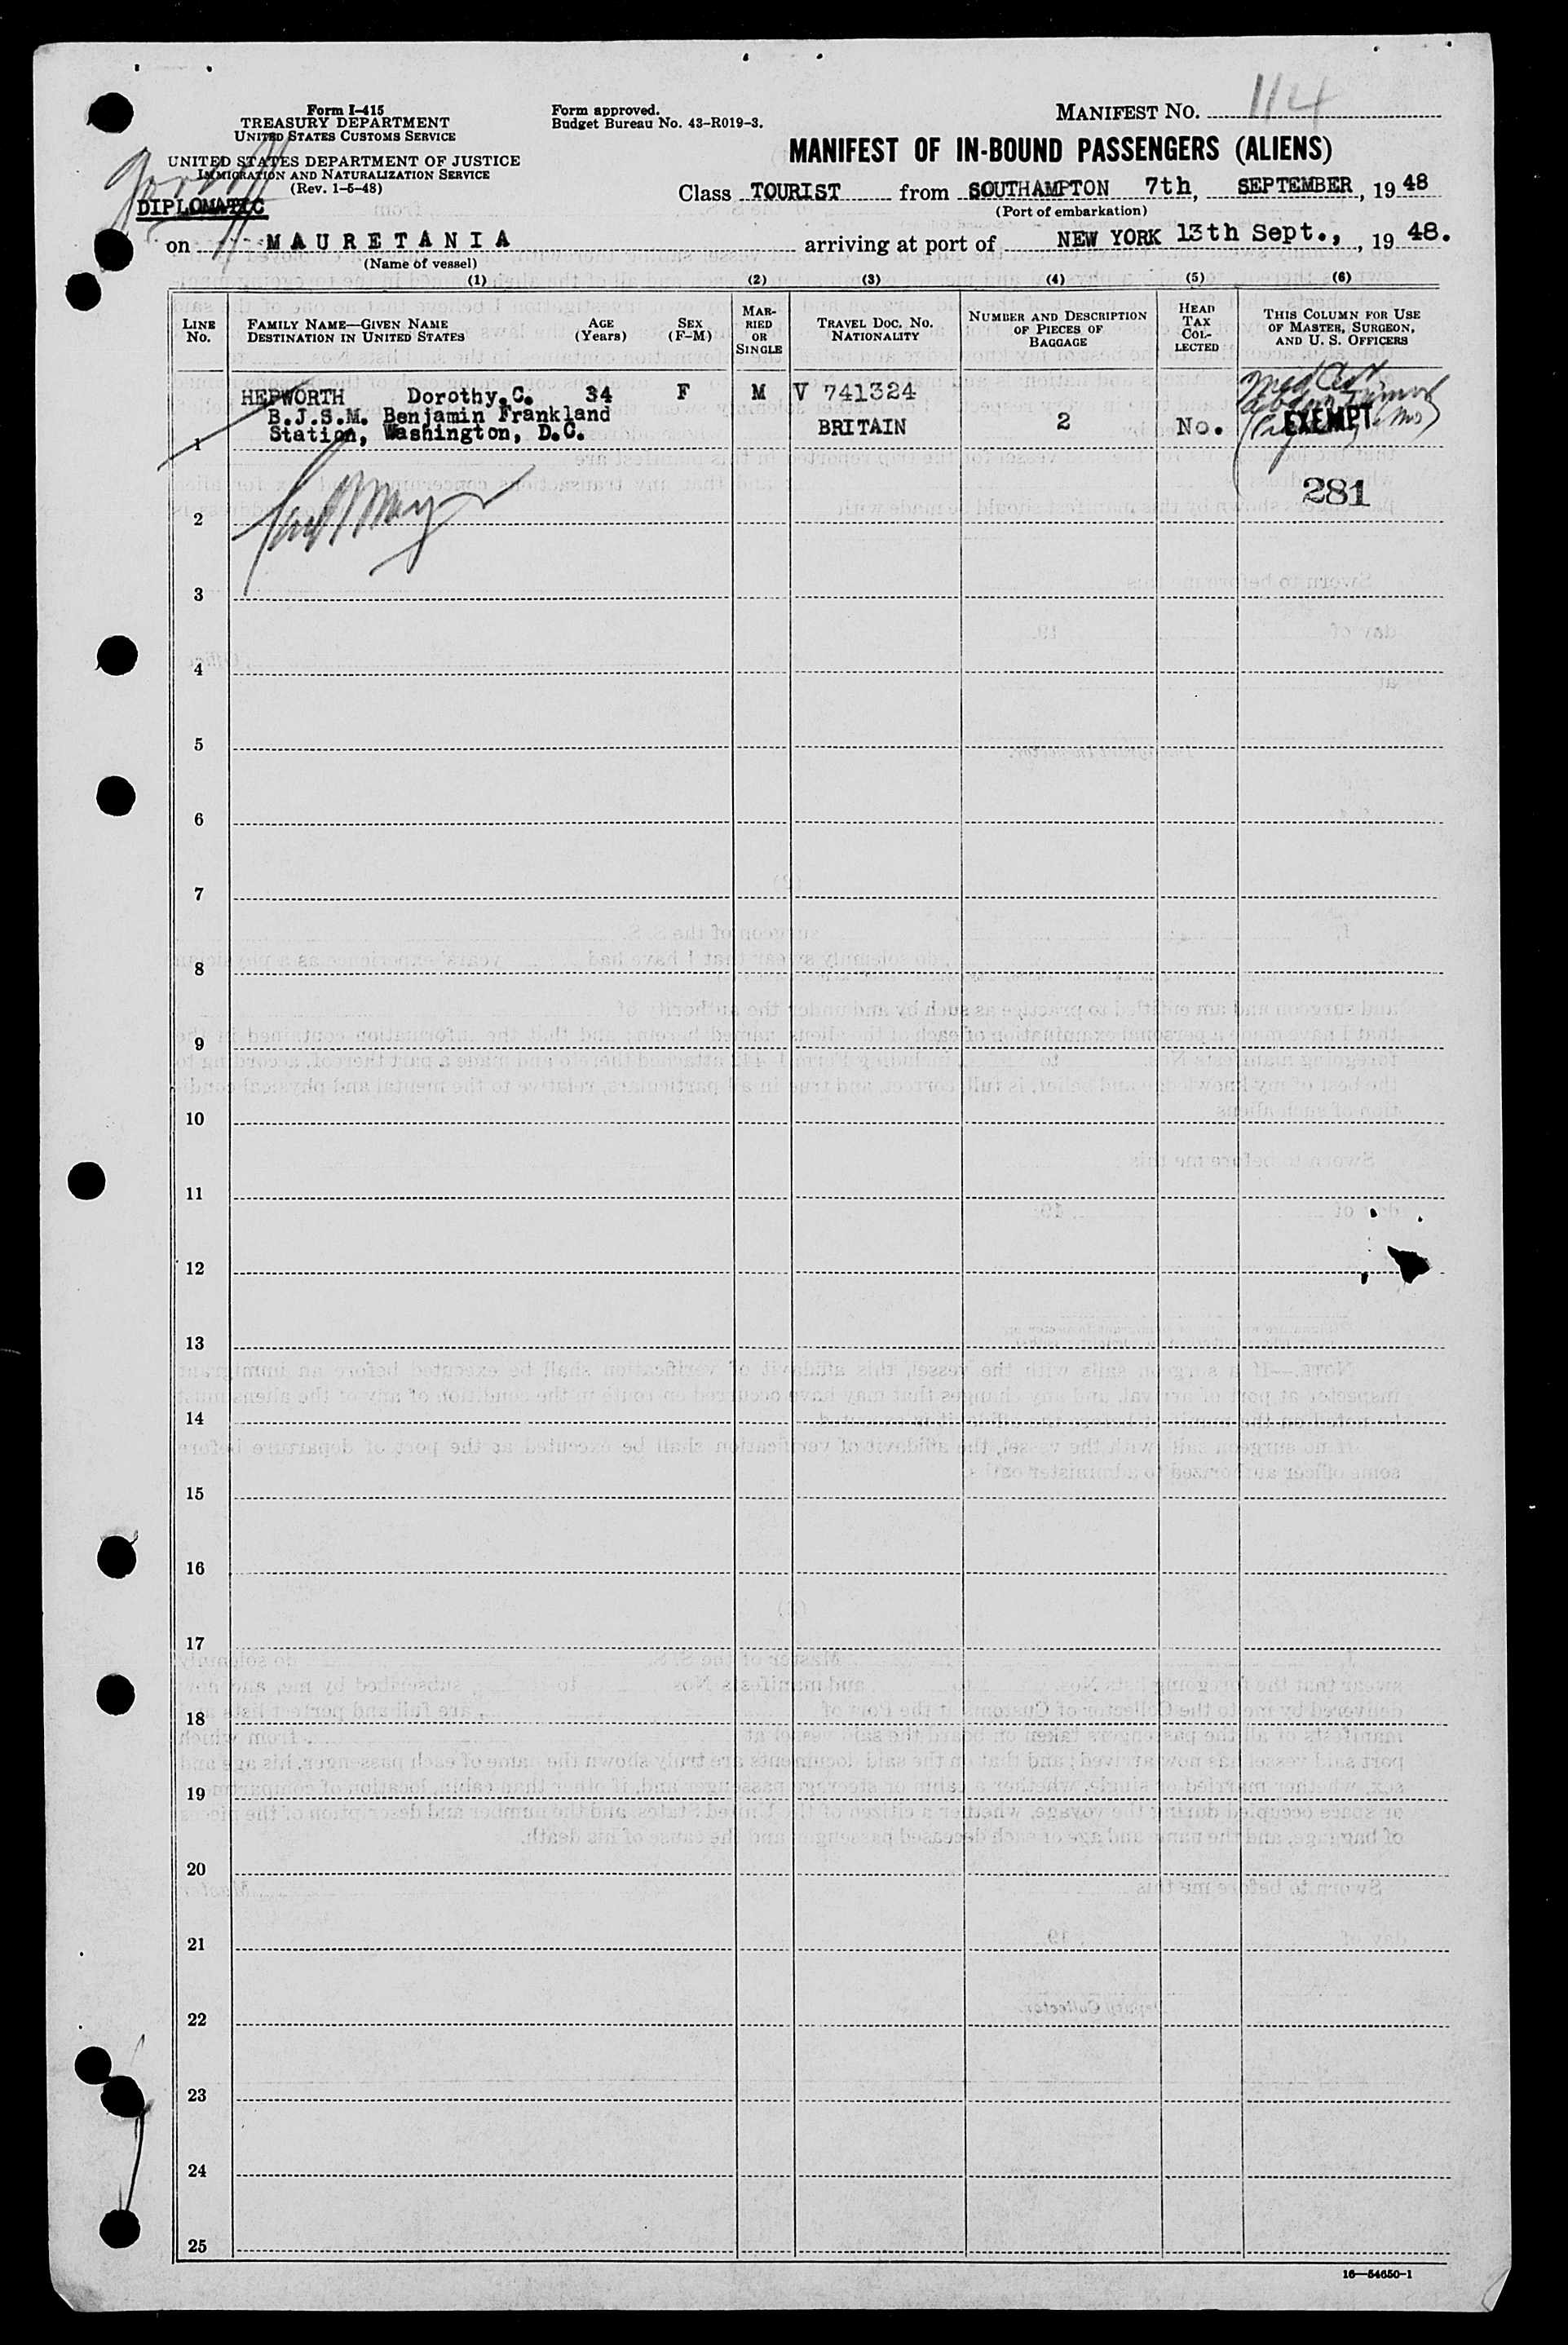 Form I-415
TREASURY DEPARTMENT
UNITED STATES CUSTOMS SERVICE
UNITED STATES DEPARTMENT OF JUSTICE
IMMIGRATION AND NATURALIZATION SERVICE
(Rev. 1-5-48)
DIPLOMATIC
Form approved.
Budget Bureau No. 43-R019-3.
MANIFEST NO. 114
MANIFEST OF IN-BOUND PASSENGERS (ALIENS)
Class TOURIST from SOUTHAMPTON 7th, SEPTEMBER, 1948
(Port of embarkation)
on MAURETANIA arriving at port of NEW YORK 13th Sept., , 19 48.
(Name of vessel)
(1) (2) (3) (4) (5) (6)
LINE NO.
FAMILY NAME—GIVEN NAME
DESTINATION IN UNITED STATES
AGE
(Years)
SEX
(F-M)
MARRIED OR SINGLE
TRAVEL DOC. NO.
NATIONALITY
NUMBER AND DESCRIPTION
OF PIECES OF
BAGGAGE
HEAD
TAX
COL-
LECTED
THIS COLUMN FOR USE
OF MASTER, SURGEON,
AND U. S. OFFICERS
HEPWORTH Dorothy.C. 34 F M V 741324
B.J.S.M. Benjamin Frankland BRITAIN 2 No. EXEMPT
Station, Washington, D.C.
1
281
2
3
4
5
6
7
8
9
10
11
12
13
14
15
16
17
18
19
20
21
22
23
24
25
16—54650-1